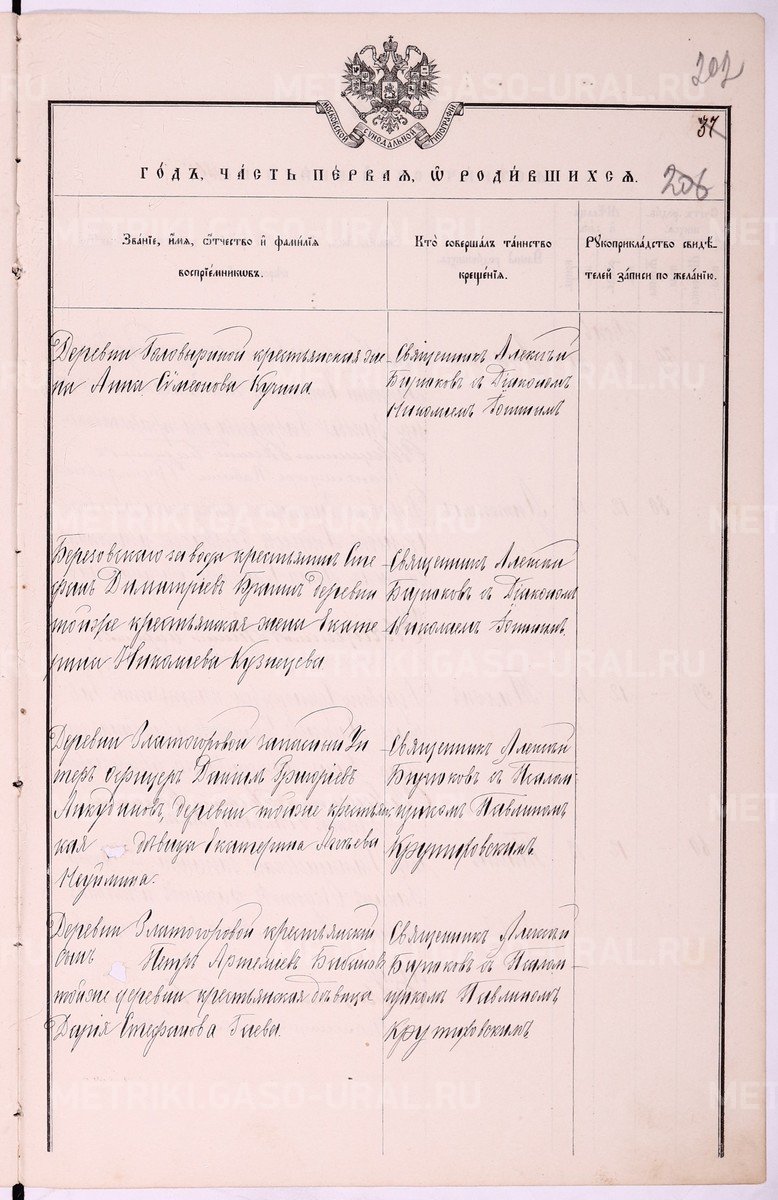 202
37
МОСКОВСКОЙ СѴНОДАЛЬНОЙ ТИПОГРАФІИ
ГОДЪ, ЧАСТЬ ПЕРВАЯ, Ѡ РОДИВШИХСЯ.
206
Званіе, имя, ѻтчество и фамилія
воспріемниковъ.
Кто совершалъ таинство
крещенія.
Рукоприкладство свидѣ-
телей записи по желанію.
Деревни крестьянская же-
на Анна Сѵмеонова Кузина
Священникъ Алексѣй
Бирюковъ съ Діакономъ
Николаемъ
Березовскаго завода крестьянинъ Сте-
фанъ Димитріевъ деревни
тойже крестьянская жена Екате-
рина Николаева Кузнецова
Священникъ Алексѣй
Бирюковъ съ Діакономъ
Николаемъ
Деревни Златогоровой запасный Ун-
теръ офицеръ Даніилъ Григоріевъ
деревни тойже крестьян-
ская дѣвица Екатерина
Неуймина.
Священникъ Алексѣй
Бирюковъ съ Псалом-
щикомъ Павлиномъ
Крутиховскимъ
Деревни Златогоровой крестьянскій
сынъ Петръ Артемьевъ Бабиновъ
тойже деревни крестьянская дѣвица
Дарія Стефанова Гаева
Священникъ Алексѣй
Бирюковъ съ Псалом-
щикомъ Павлиномъ
Крутиховскимъ
METRIKI.GASO-URAL.RU